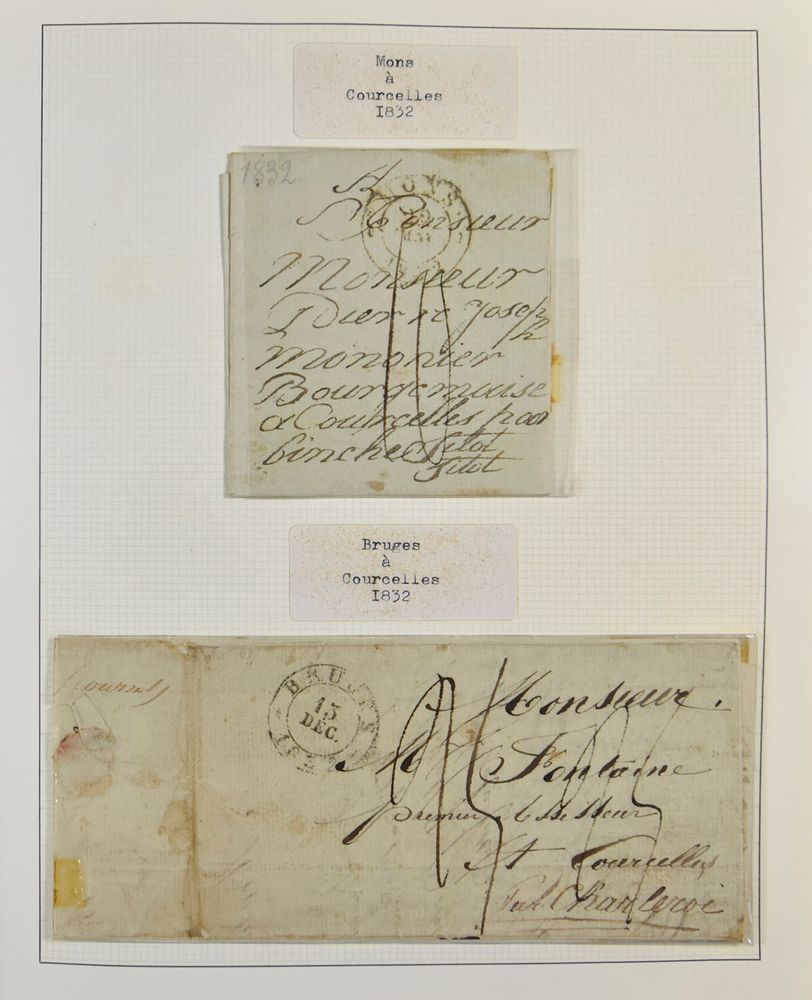 Mons
à
Courcelles
1832
1832
MONS
A
Monsieur
Monsieur
Pierre Joseph
mononier
Bourgemaise
a Courcelles poor
binche Sitot
Sitot
Bruges
à
Courcelles
1832
BRUGES
15
DEC.
Monsieur
M Fontaine
premier
At Courcelles
Charleroi